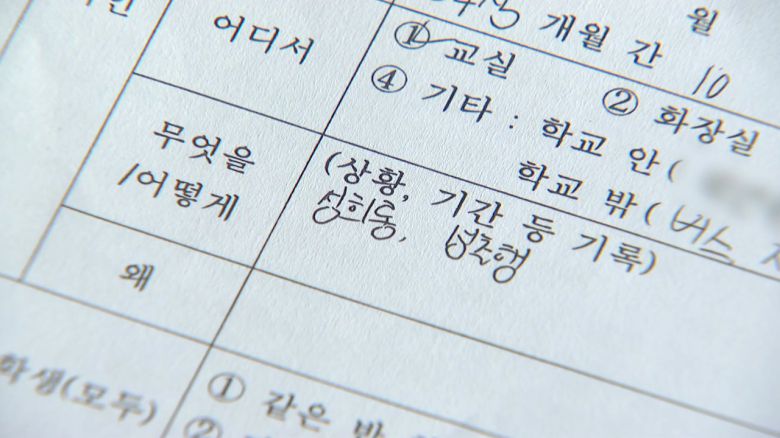 개월 간 10 월
어디서
① 교실 ② 화장실
④ 기타 : 학교 안(
학교 밖( 버스
무엇을
/어떻게
(상황, 기간 등 기록)
성희롱, 성추행
왜
학생(모두)
① 같은 반
②